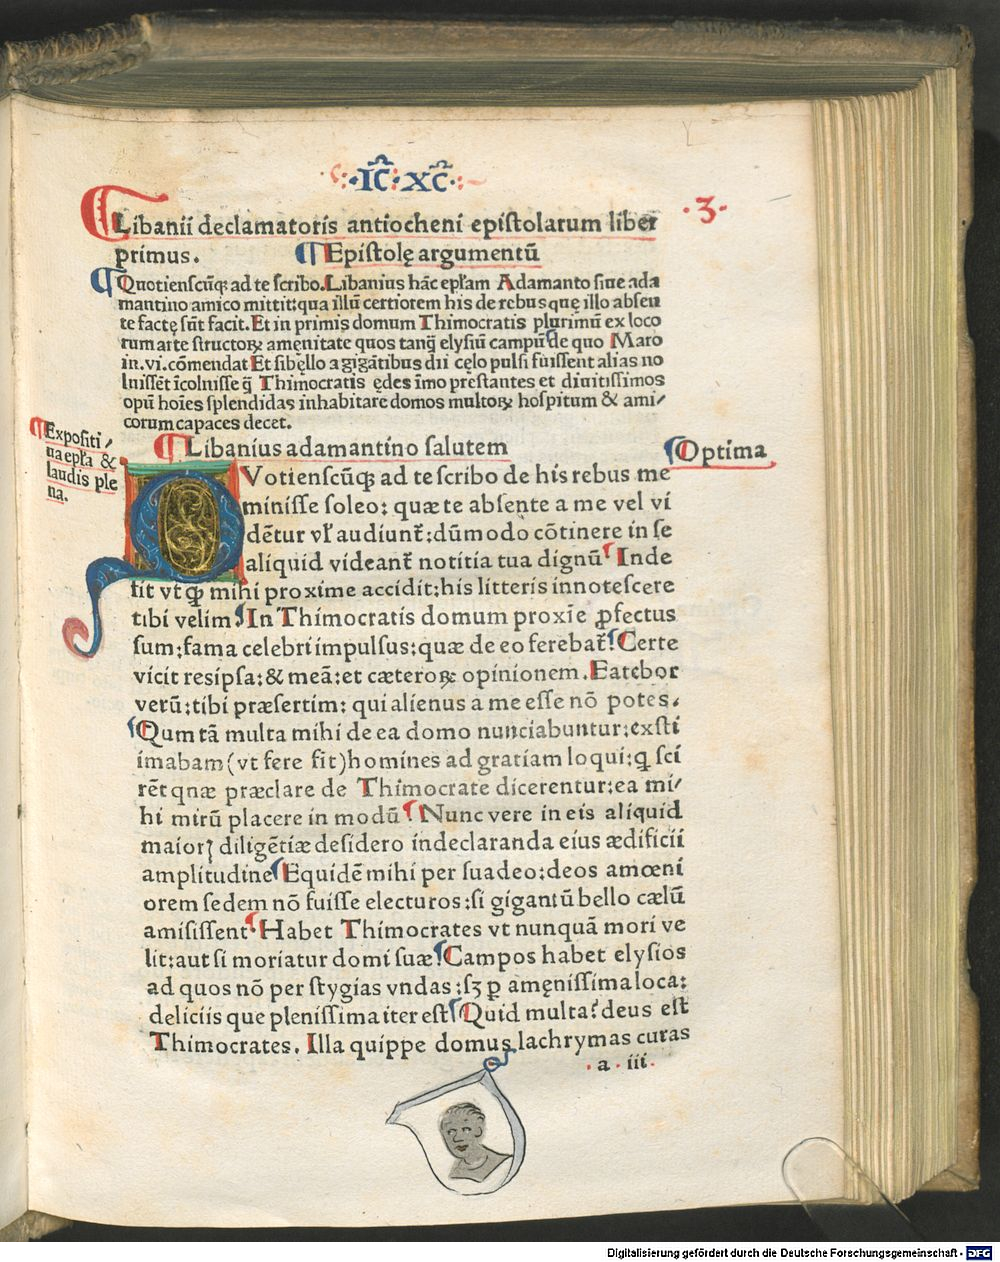 ·IC̄·XC̄·
Libanii declamatoris antiocheni epiſtolarum liber
·3·
primus. ¶ Epiſtolę argumentū
¶ Quotienſcūqꝫ ad te ſcribo. Libanius hāc epl̄am Adamanto ſiue ada
mantino amico mittit: qua illū certiorem his de rebus quę illo abſen
te factę ſūt facit. Et in primis domum Thimocratis plurimū ex loco
rum arte ſtructoꝝ amęnitate quos tanq̄ elyſiū campū de quo Maro
in .vi. cōmendat Et ſi bello a gigātibus dii cęlo pulſi fuiſſent alias no
luiſſēt īcolniſſe q̄ Thimocratis ędes īmo preſtantes et diuitiſſimos
opū hoīes ſplendidas inhabitare domos multoꝝ hoſpitum & ami⸗
corum capaces decet.
¶ Expoſiti⸗
ua epl̄a &
laudis ple
na.
¶ Libanius adamantino ſalutem
¶ Optima
QVotienſcūqꝫ ad te ſcribo de his rebus me
miniſſe ſoleo: quæ te abſente a me vel vi
dētur vl̓ audiunt᷑: dūmodo cōtinere in ſe
aliquid videant᷑ notitia tua dignū ¶ Inde
fit vt qđ mihi proxime accidit: his litteris innoteſcere
tibi velim ¶ In Thimocratis domum proxīe ꝓfectus
ſum: fama celebri impulſus: quæ de eo ferebat᷑: ¶ Certe
vicit reſipſa: & meā: et cæteroꝝ opinionem. Eatebor
verū: tibi præſertim: qui alienus a me eſſe nō potes.
¶ Qum tā multa mihi de ea domo nunciabuntur: exſti
imabam (vt fere fit) homines ad gratiam loqui: ꝙ ſci
rēt quæ præclare de Thimocrate dicerentur: ea mi⸗
hi mirū placere in modū ¶ Nunc vere in eis aliquid
maiorꝭ diligētiæ deſidero in declaranda eius ædificii
amplitudine ¶ Equidē mihi per ſuadeo: deos amœni
orem ſedem nō fuiſſe electuros: ſi gigantū bello cælū
amiſiſſent ¶ Habet Thimocrates vt nunquā mori ve
lit: aut ſi moriatur domi ſuæ ¶ Campos habet elyſios
ad quos nō per ſtygias vndas: ſꝫ ꝑ amęniſſima loca:
deliciis que pleniſſima iter eſt ¶ Quid multa? deus eſt
Thimocrates. Illa quippe domus lachrymas curas
·a·iii·
Digitalisierung gefördert durch die Deutsche Forschungsgemeinschaft - DFG